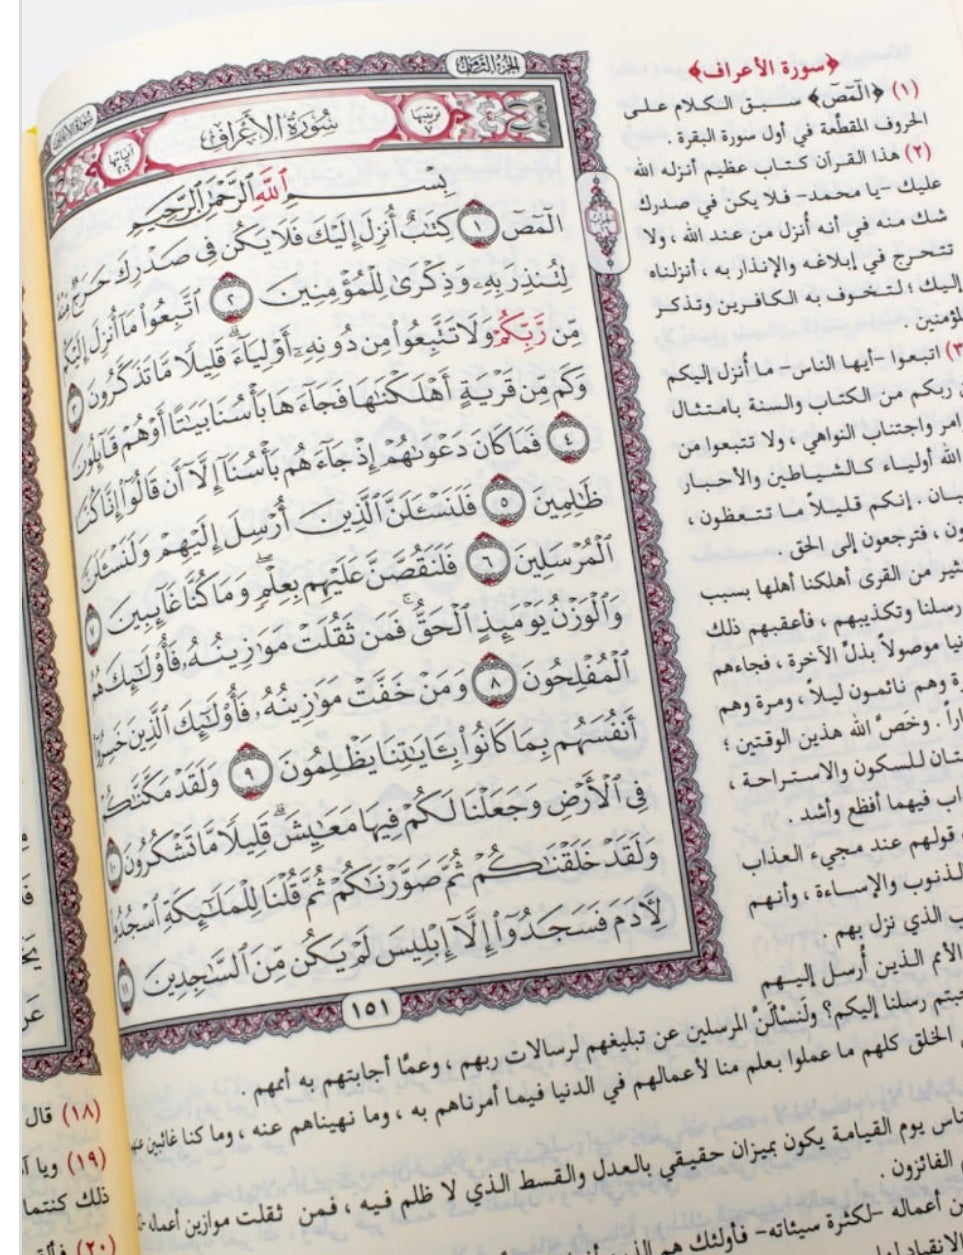 الجزء الثامن
سورة الأعراف
ترتيبها ٧
آياتها ٢٠٦
سُورَةُ الأَعْرَافِ
بِسْمِ ٱللَّهِ ٱلرَّحْمَٰنِ ٱلرَّحِيمِ
الٓمٓصٓ ١ كِتَٰبٌ أُنزِلَ إِلَيْكَ فَلَا يَكُن فِى صَدْرِكَ حَرَجٌ مِّنْهُ
لِتُنذِرَ بِهِۦ وَذِكْرَىٰ لِلْمُؤْمِنِينَ ٢ ٱتَّبِعُوا۟ مَآ أُنزِلَ إِلَيْكُم
مِّن رَّبِّكُمْ وَلَا تَتَّبِعُوا۟ مِن دُونِهِۦٓ أَوْلِيَآءَ ۗ قَلِيلًا مَّا تَذَكَّرُونَ ٣
وَكَم مِّن قَرْيَةٍ أَهْلَكْنَٰهَا فَجَآءَهَا بَأْسُنَا بَيَٰتًا أَوْ هُمْ قَآئِلُونَ
٤ فَمَا كَانَ دَعْوَىٰهُمْ إِذْ جَآءَهُم بَأْسُنَآ إِلَّآ أَن قَالُوٓا۟ إِنَّا كُنَّا
ظَٰلِمِينَ ٥ فَلَنَسْـَٔلَنَّ ٱلَّذِينَ أُرْسِلَ إِلَيْهِمْ وَلَنَسْـَٔلَنَّ
ٱلْمُرْسَلِينَ ٦ فَلَنَقُصَّنَّ عَلَيْهِم بِعِلْمٍ ۖ وَمَا كُنَّا غَآئِبِينَ ٧
وَٱلْوَزْنُ يَوْمَئِذٍ ٱلْحَقُّ ۚ فَمَن ثَقُلَتْ مَوَٰزِينُهُۥ فَأُو۟لَٰٓئِكَ هُمُ
ٱلْمُفْلِحُونَ ٨ وَمَنْ خَفَّتْ مَوَٰزِينُهُۥ فَأُو۟لَٰٓئِكَ ٱلَّذِينَ خَسِرُوٓا۟
أَنفُسَهُم بِمَا كَانُوا۟ بِـَٔايَٰتِنَا يَظْلِمُونَ ٩ وَلَقَدْ مَكَّنَّٰكُمْ
فِى ٱلْأَرْضِ وَجَعَلْنَا لَكُمْ فِيهَا مَعَٰيِشَ ۗ قَلِيلًا مَّا تَشْكُرُونَ ١٠
وَلَقَدْ خَلَقْنَٰكُمْ ثُمَّ صَوَّرْنَٰكُمْ ثُمَّ قُلْنَا لِلْمَلَٰٓئِكَةِ ٱسْجُدُوا۟
لِءَادَمَ فَسَجَدُوٓا۟ إِلَّآ إِبْلِيسَ لَمْ يَكُن مِّنَ ٱلسَّٰجِدِينَ ١١
١٥١
﴿سورة الأعراف﴾
(١) ﴿الٓمٓصٓ﴾ سبق الكلام على
الحروف المقطَّعة في أول سورة البقرة .
(٢) هذا القرآن كتاب عظيم أنزله الله
عليك -يا محمد- فلا يكن في صدرك
شك منه في أنه أنزل من عند الله ، ولا
تتحرج في إبلاغه والإنذار به ، أنزلناه
إليك ؛ لتخوف به الكافرين وتذكر
المؤمنين .
(٣) اتبعوا -أيها الناس- ما أُنزل إليكم
ربكم من الكتاب والسنة بامتثال
واجتناب النواهي ، ولا تتبعوا من
الله أولياء كالشياطين والأحبار
إنكم قليلاً ما تتعظون ،
فترجعون إلى الحق .
من القرى أهلكنا أهلها بسبب
رسلنا وتكذيبهم ، فأعقبهم ذلك
موصولاً بذلِّ الآخرة ، فجاءهم
وهم نائمون ليلاً ، ومرة وهم
وخَصَّ الله هذين الوقتين ؛
للسكون والاستراحة ،
فيهما أفظع وأشد .
قولهم عند مجيء العذاب
والإساءة ، وأنهم
الذي نزل بهم
الأمم الذين أُرسل إليهم
رسلنا إليكم؟ ولَنسْألَنَّ المرسلين عن تبليغهم لرسالات ربهم ، وعمَّا أجابتهم به أممهم .
الخلق كلهم ما عملوا بعلم منا لأعمالهم في الدنيا فيما أمرناهم به ، وما نهيناهم عنه ، وما كنا غائبين
يوم القيامة يكون بميزان حقيقي بالعدل والقسط الذي لا ظلم فيه ، فمن ثقلت موازين أعماله
الفائزون .
أعماله -لكثرة سيئاته- فأولئك هم
(١٨) قال
(١٩) ويا
ذلك
(٢٠)